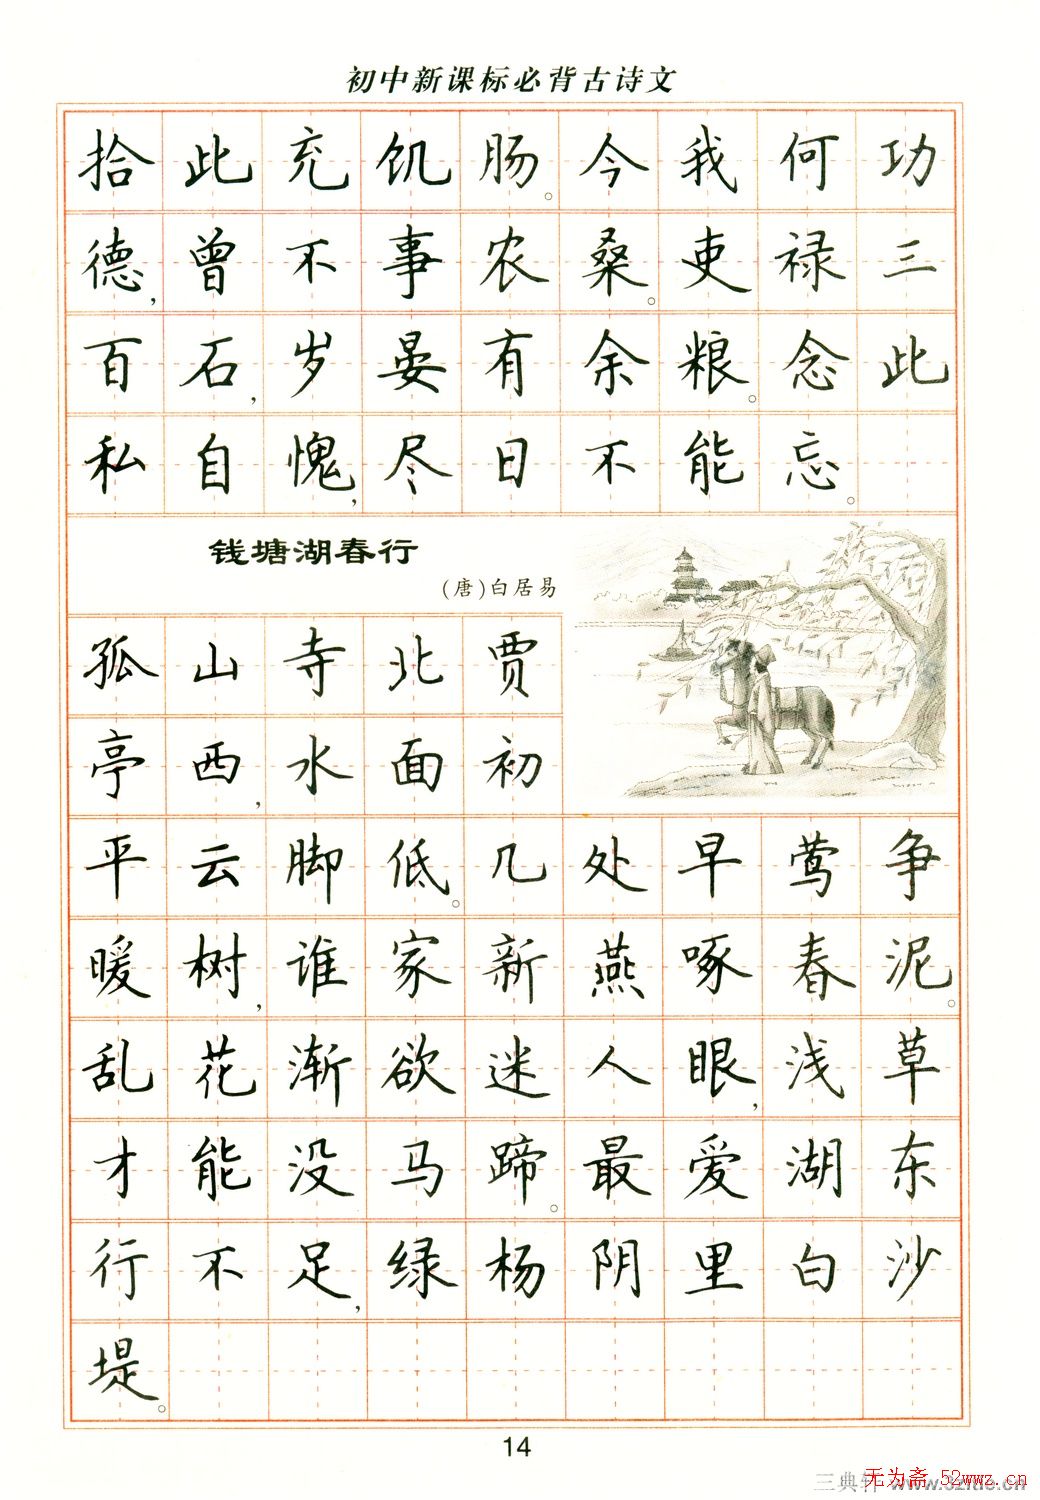 初中新课标必背古诗文
拾此充饥肠。今我何功
德,曾不事农桑。吏禄三
百石,岁晏有余粮。念此
私自愧,尽日不能忘。
钱塘湖春行
(唐)白居易
孤山寺北贾
亭西,水面初
平云脚低。几处早莺争
暖树,谁家新燕啄春泥。
乱花渐欲迷人眼,浅草
才能没马蹄。最爱湖东
行不足,绿杨阴里白沙
堤。
14
无为斋.52wwz.cn